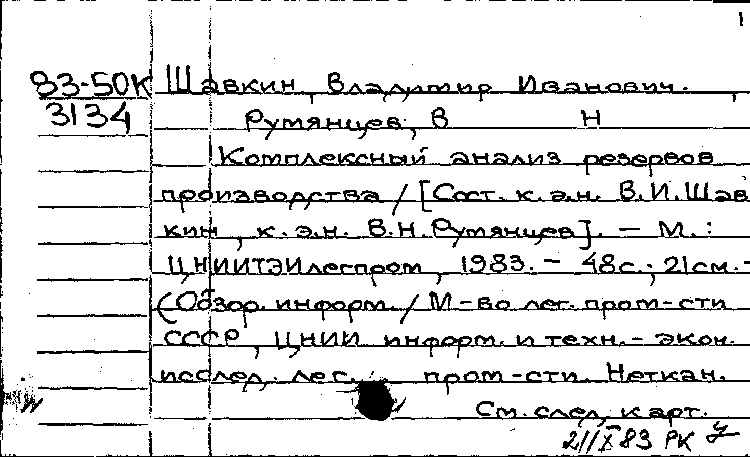 1
83-50К Шавкин, Владимир Иванович.,
3134 Румянцев, В Н
Комплексный анализ резервов
производства / [Сост. к. э.н. В.И.Шав
кин, к. э.н. В.Н.Румянцев]. – М.:
ЦНИИТЭИлегпром, 1983. – 48с.; 21см.–
(Обзор. информ. / М-во лег. пром-сти
СССР, ЦНИИ информ. и техн.-экон.
исслед. лег. пром-сти. Неткан.
См. след. карт.
83 РК